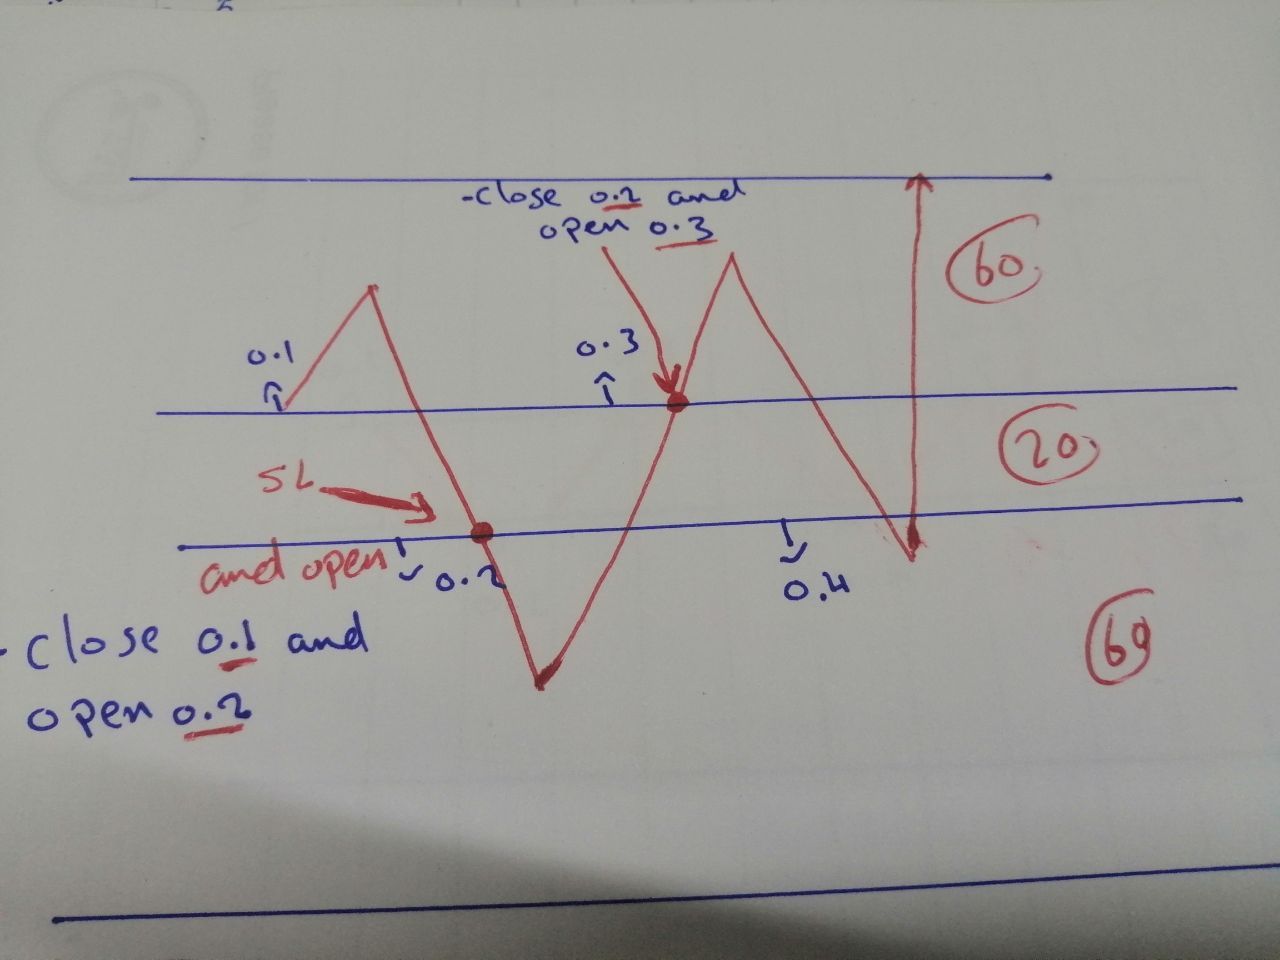 -close 0.2 and
open 0.3
60
0.1
0.3
20
SL
and open
0.2
0.4
- close 0.1 and
open 0.2
60